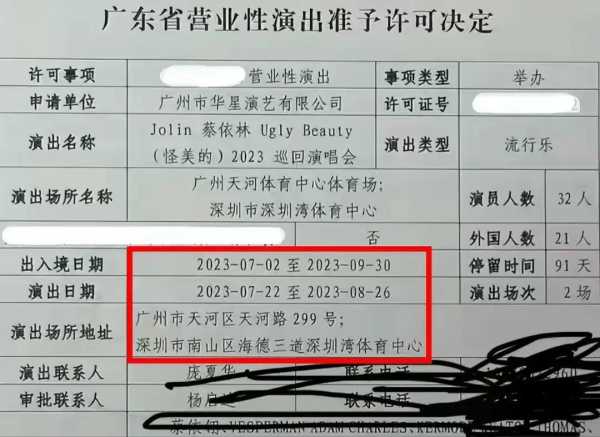 广东省营业性演出准予许可决定
许可事项 营业性演出 事项类型 举办
申请单位 广州市华星演艺有限公司 许可证号 2
演出名称 Jolin 蔡依林 Ugly Beauty (怪美的) 2023 巡回演唱会 演出类型 流行乐
演出场所名称 广州天河体育中心体育场; 演员人数 32 人
深圳市深圳湾体育中心
否 外国人数 21 人
出入境日期 2023-07-02 至 2023-09-30 停留时间 91 天
演出日期 2023-07-22 至 2023-08-26 演出场次 2 场
演出场所地址 广州市天河区天河路 299 号;
深圳市南山区海德三道深圳湾体育中心
演出联系人 庞夏华 联系电话
审批联系人 杨启 联系电话
蔡依翎、VESPERMAN ADAM CHARLES、 THOMAS、